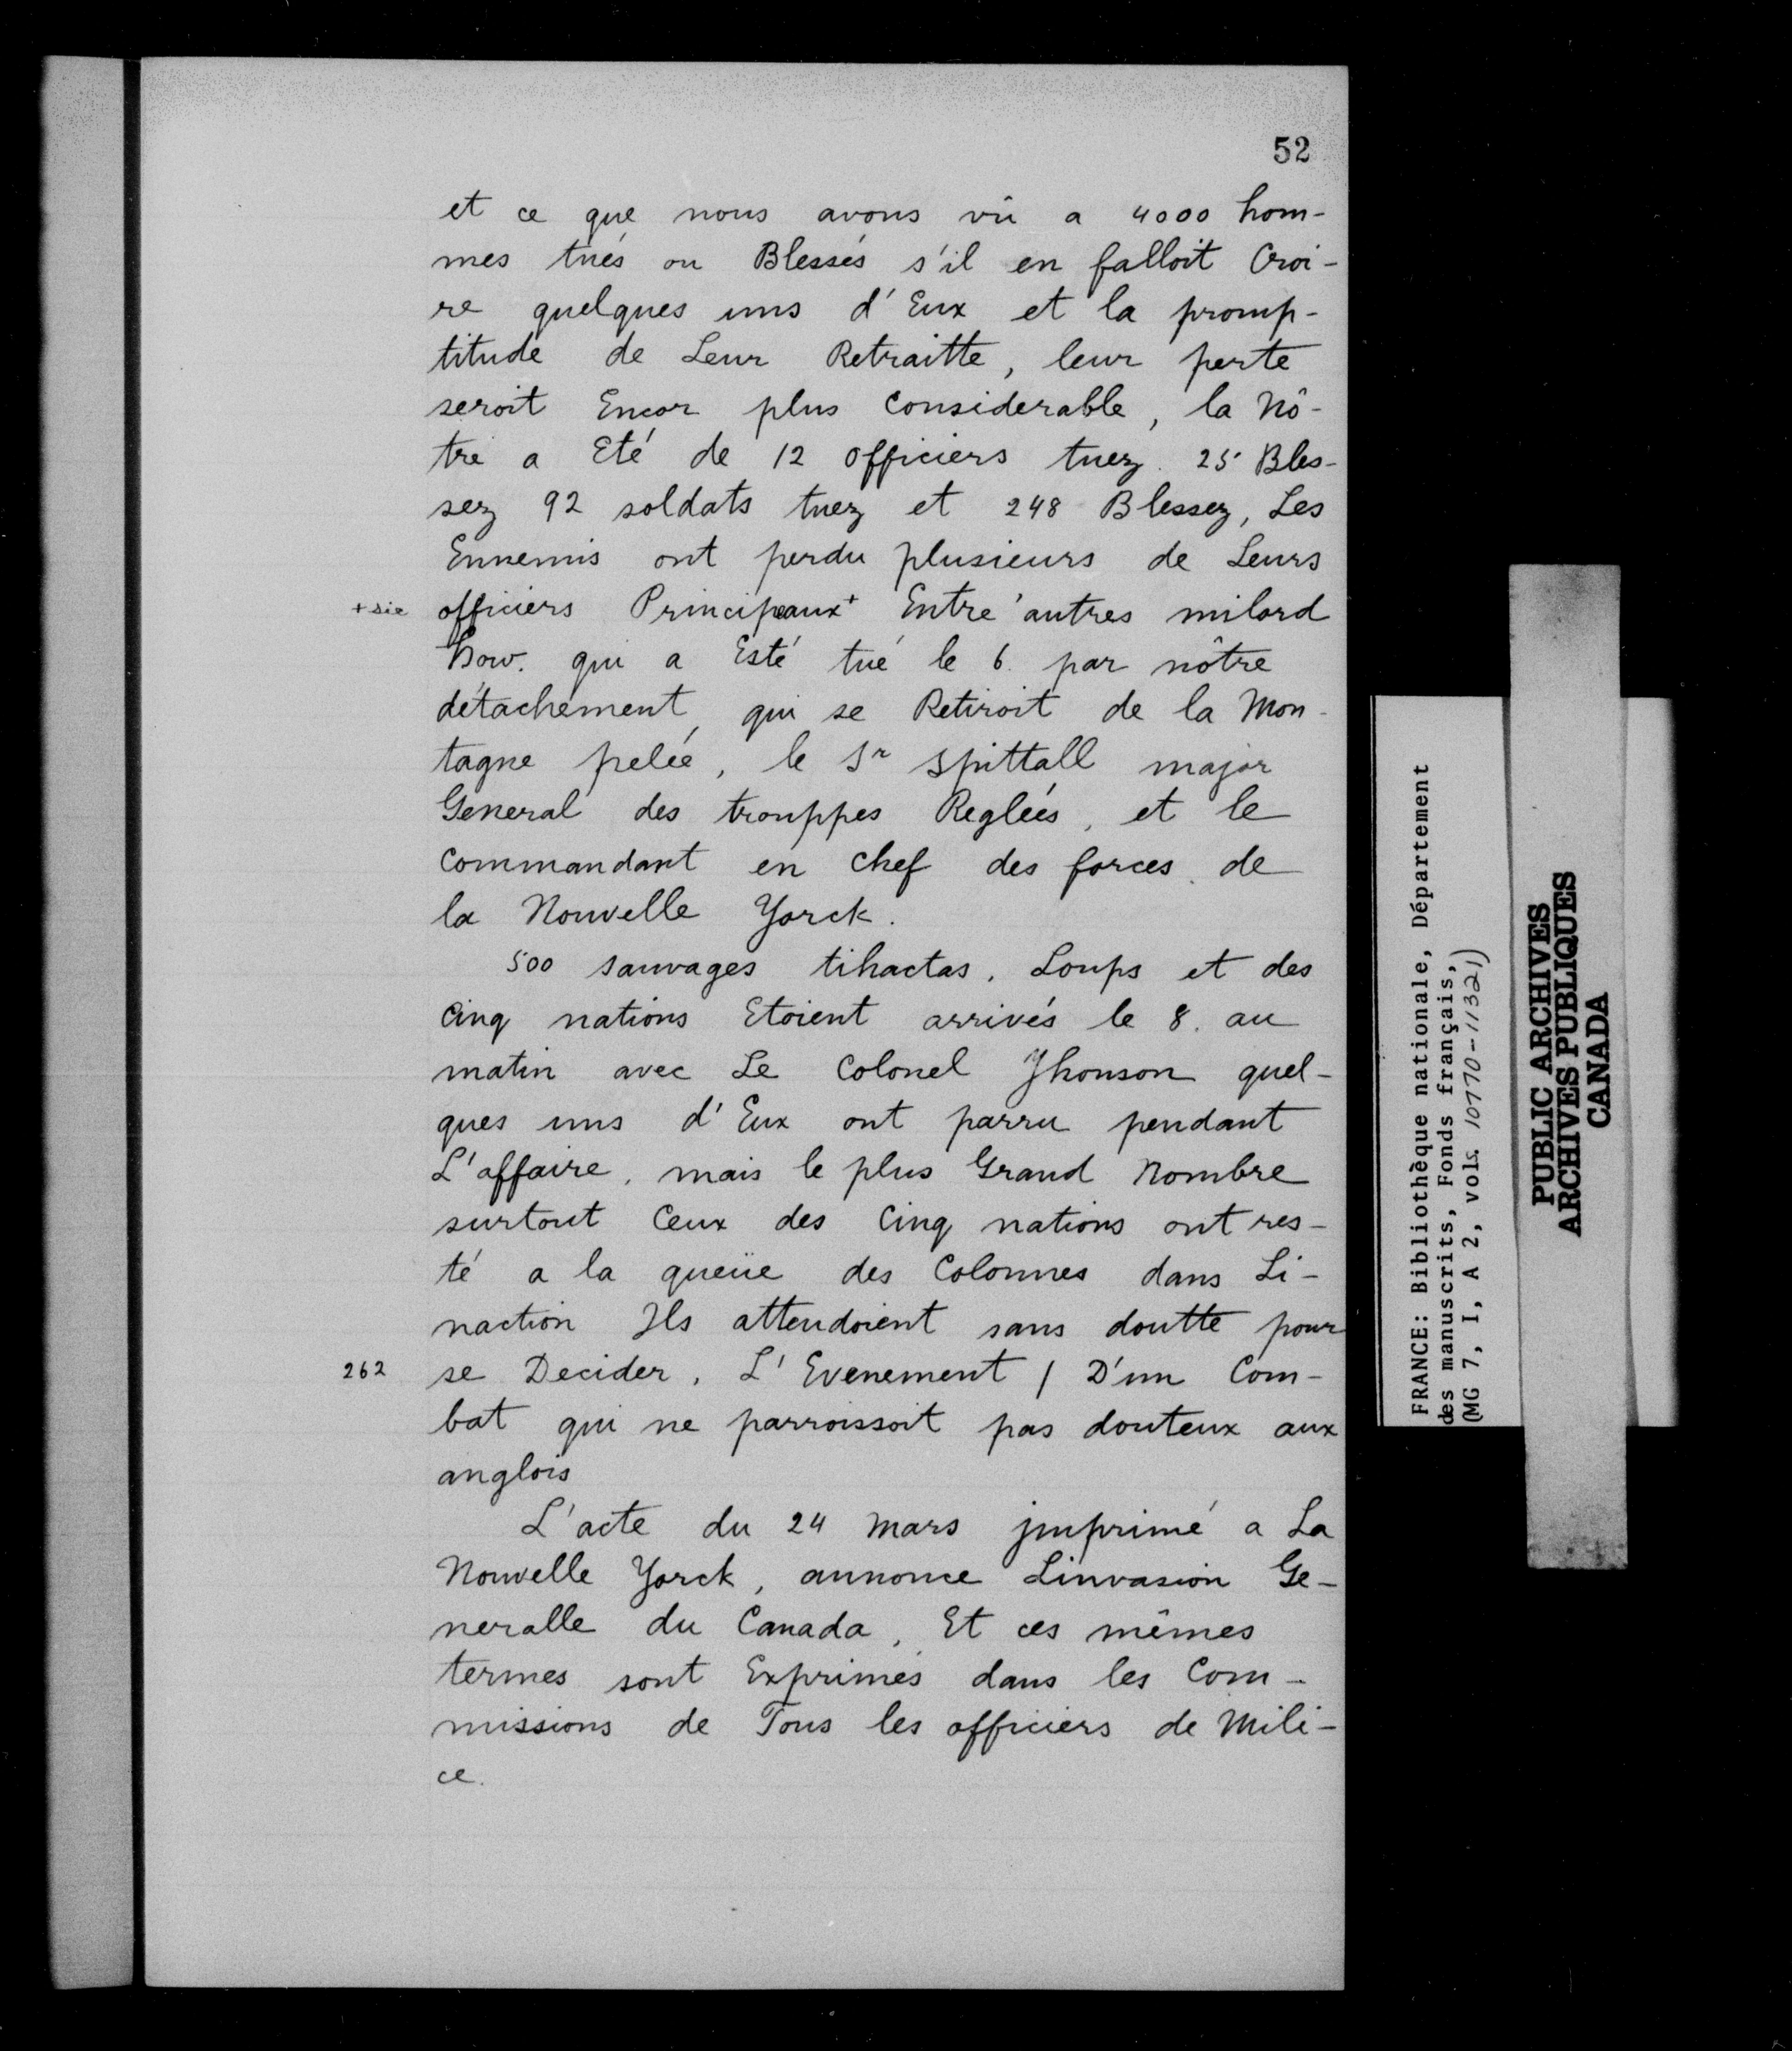 52
et ce que nous avons vû a 4000 hom-
mes tués ou Blessés s'il en falloit Croi-
re quelques uns d'Eux et la promp-
titude de Leur Retraitte, leur perte
seroit Encor plus Considerable, la Nô-
tre a Eté de 12 officiers tuez. 25 Bles-
sez 92 soldats tuez et 248 Blessez, Les
Ennemis ont perdu plusieurs de Leurs
+ sic officiers Principeaux+ Entre'autres milord
how. qui a Esté tué le 6. par nôtre
détachement, qui se Retiroit de la Mon-
tagne pelée, le Sr Spittall major
General des trouppes Reglées, et le
Commandant en chef des forces de
la Nouvelle Yorck.
500 sauvages tihactas, Loups et des
Cinq nations Etoient arrivés le 8. au
matin avec Le Colonel Jhonson quel-
ques uns d'Eux ont parru pendant
L'affaire, mais le plus Grand Nombre
surtout Ceux des Cinq nations ont res-
té a la queüe des Colonnes dans Li-
naction Ils attendoient sans doutte pour
262 se Decider, L'Evenement / D'un Com-
bat qui ne parroissoit pas douteux aux
anglois
L'acte du 24 Mars jmprimé a La
Nouvelle Yorck, annonce Linvasion Ge-
neralle du Canada, Et ces mêmes
termes sont Exprimés dans les Com-
missions de Tous les officiers de Mili-
ce.
FRANCE: Bibliothèque nationale, Département
des manuscrits, Fonds français,
(MG 7, I, A 2, vols. 10770-11321)
PUBLIC ARCHIVES
ARCHIVES PUBLIQUES
CANADA